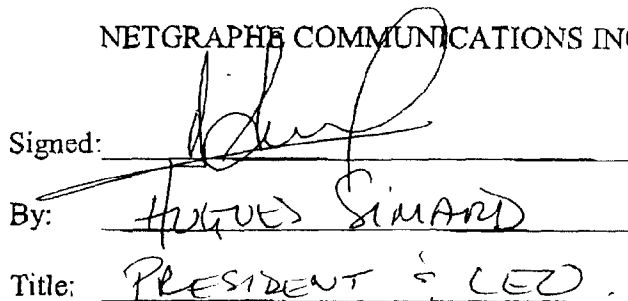 NETGRAPHE COMMUNICATIONS INC
Signed:
By: HUGUES SIMARD
Title: PRESIDENT & CEO.